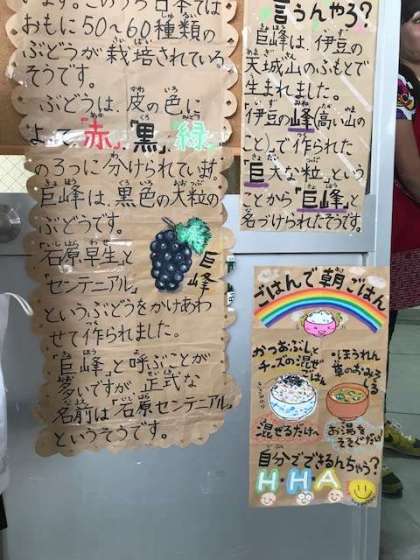 ます。このうち日本では
おもに50〜60種類の
ぶどうが栽培されている
そうです。
ぶどうは、皮の色に
よって「赤」「黒」「緑」
の3つに分けられています。
巨峰は、黒色の大粒の
ぶどうです。
「石原早生」と
「センテニアル」
というぶどうをかけあわ
せて作られました。
「巨峰」と呼ぶことが
多いですが、正式な
名前は「石原センテニアル」
というそうです。
巨峰
言うんやろ?
巨峰は、伊豆の
天城山のふもとで
生まれました。
「伊豆の峰(高い山の
こと)」で作られた
「巨大な粒」という
ことから「巨峰」と
名づけられたそうです。
ごはんで朝ごはん
かつおぶしと
チーズの混ぜ
ごはん
混ぜるだけ〜
・ほうれん
草のおみそ
しる
お湯を
そそぐだけ
自分でできるんちゃう?
H・H・A